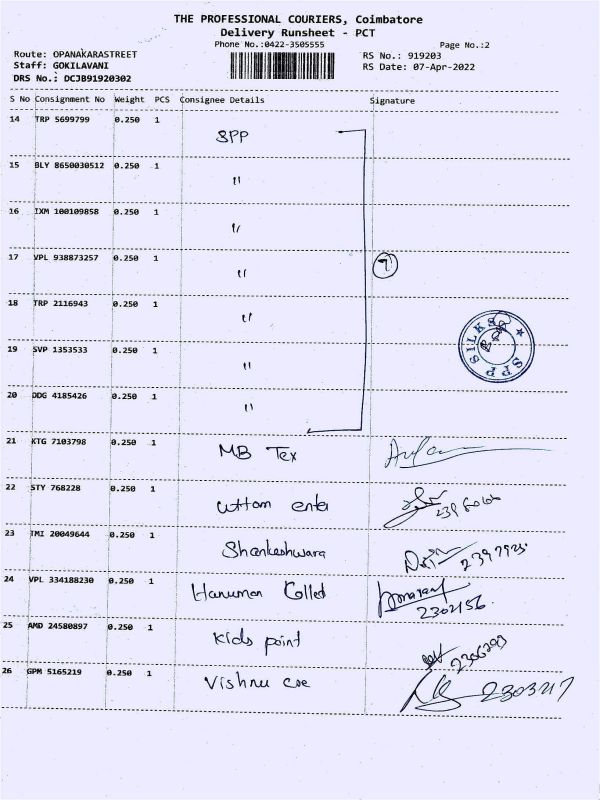 THE PROFESSIONAL COURIERS, Coimbatore
Delivery Runsheet - PCT
Phone No.:0422-3505555 Page No.:2
Route: OPANAKARASTREET RS No.: 919203
Staff: GOKILAVANI RS Date: 07-Apr-2022
DRS No.: DCJB91920302
S No Consignment No Weight PCS Consignee Details Signature
14 TRP 5699799 0.250 1 SPP
15 BLY 8650030512 0.250 1 "
16 IXM 100109858 0.250 1 "
17 VPL 938873257 0.250 1 " 7
18 TRP 2116943 0.250 1 "
SPP SILKS
19 SVP 1353533 0.250 1 "
20 DDG 4185426 0.250 1 "
21 KTG 7103798 0.250 1 MB Tex
22 STY 768228 0.250 1 uttam enter
23 TMI 20049644 0.250 1 Shankeshwara
24 VPL 334188230 0.250 1 Hanuman 2302156
25 AMD 24580897 0.250 1 Kids point
26 GPM 5165219 0.250 1 Vishnu 2303217